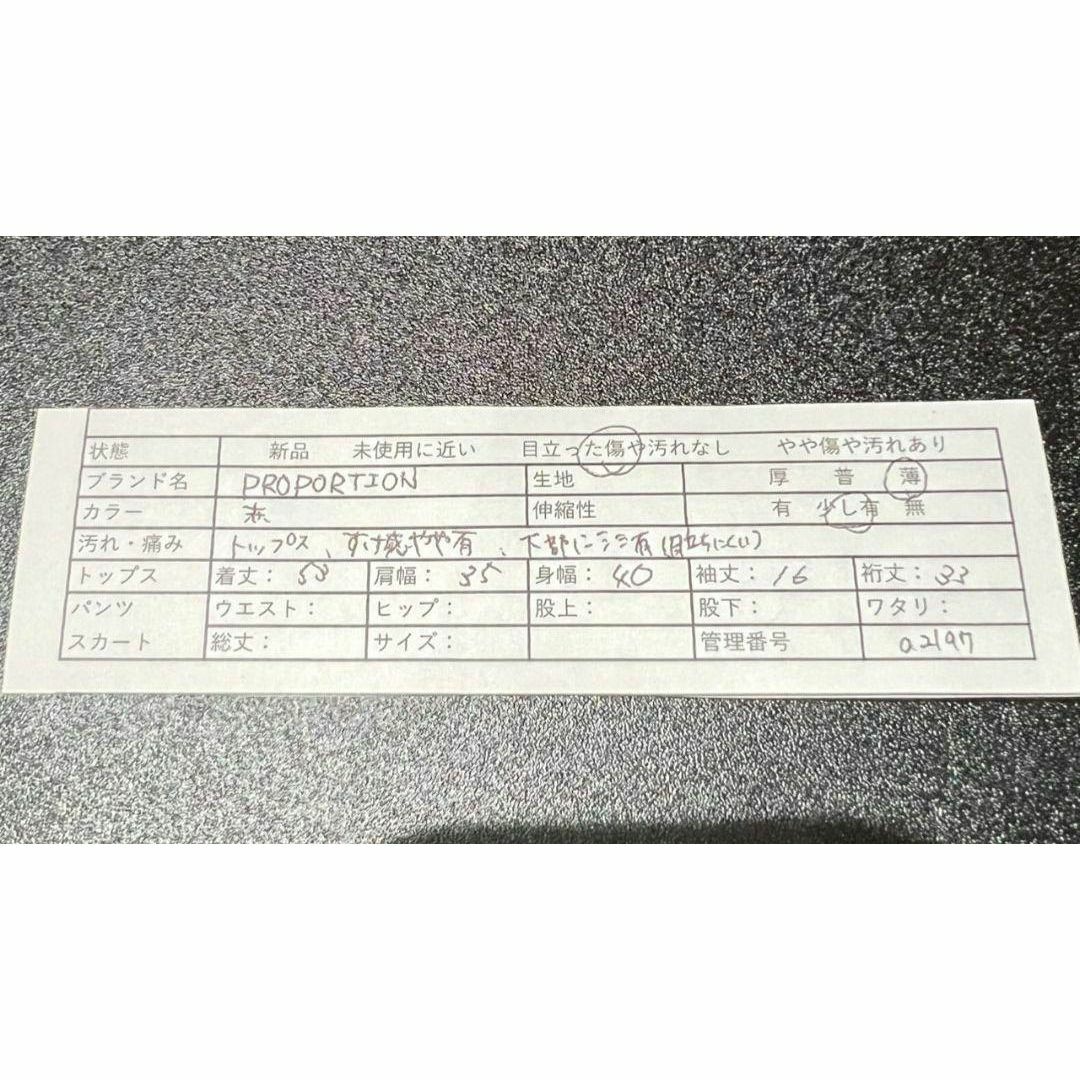 状態 新品 未使用に近い 目立った傷や汚れなし やや傷や汚れあり
ブランド名 PROPORTION 生地 厚 普 薄
カラー 伸縮性 有 少し有 無
汚れ・痛み トップス、すけ感やや有、下部にシミ有(目立ちにくい)
トップス 着丈: 53 肩幅: 35 身幅: 40 袖丈: 16 裄丈: 33
パンツ ウエスト: ヒップ: 股上: 股下: ワタリ:
スカート 総丈: サイズ: 管理番号 a2197